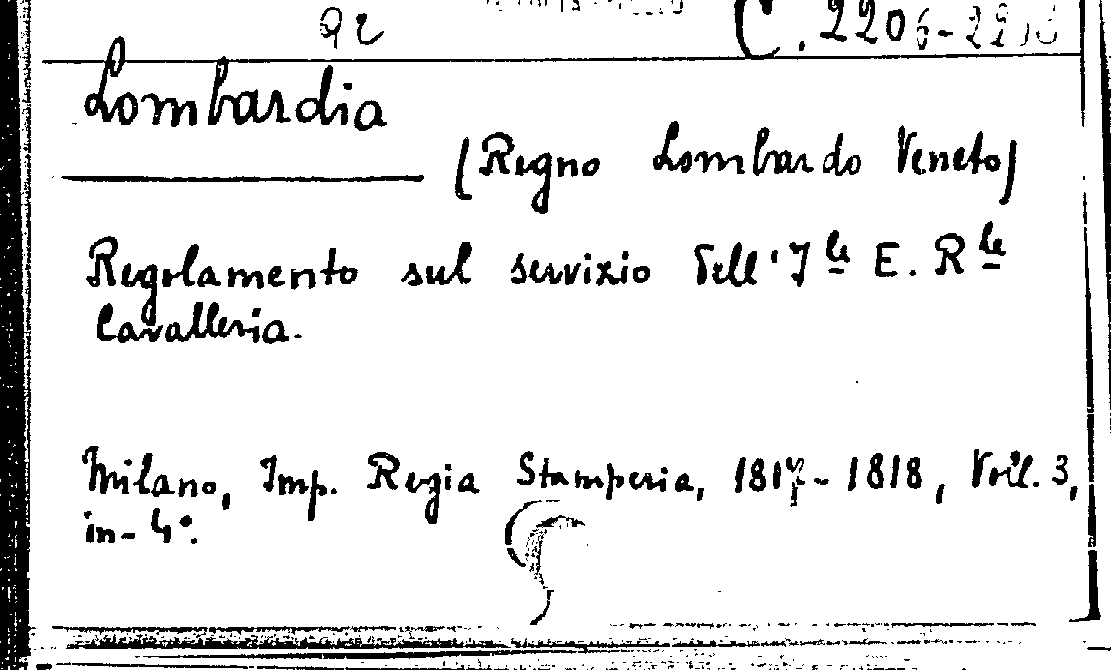 92
Lombardia
(Regno Lombardo Veneto)
Regolamento sul servizio dell' Ile E. Rle
Cavalleria.
Milano, Imp. Regia Stamperia, 1817-1818, Voll. 3,
in-4°.